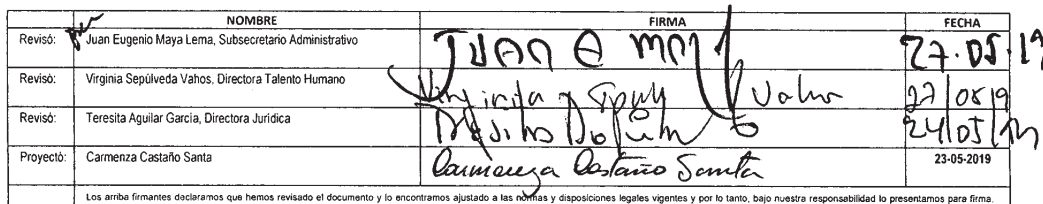 NOMBRE FIRMA FECHA
Revisó: Juan Eugenio Maya Lema, Subsecretario Administrativo JUAN E MAY 27.05.19
Revisó: Virginia Sepúlveda Vahos, Directora Talento Humano Virginia Vahos 27/05/19
Revisó: Teresita Aguilar García, Directora Jurídica 24/05/
Proyectó: Carmenza Castaño Santa Carmenza Castaño Santa 23-05-2019
Los arriba firmantes declaramos que hemos revisado el documento y lo encontramos ajustado a las normas y disposiciones legales vigentes y por lo tanto, bajo nuestra responsabilidad lo presentamos para firma.